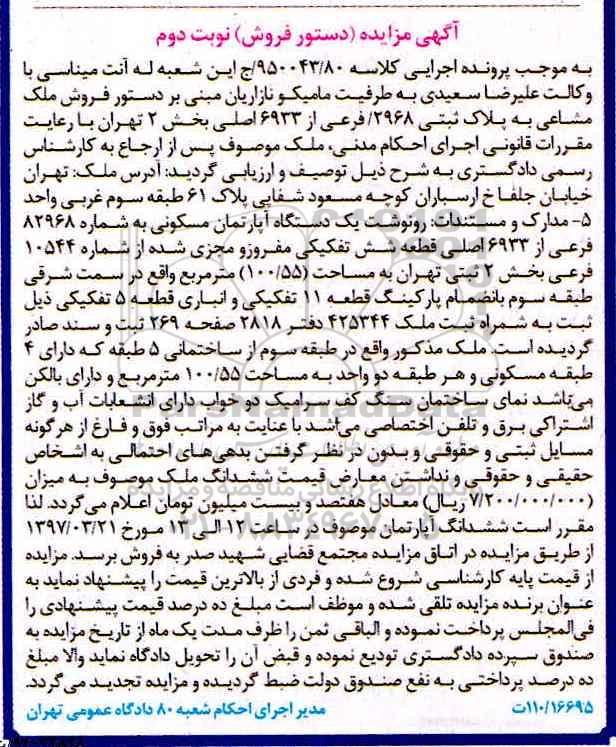 آگهی مزایده (دستور فروش) نوبت دوم
به موجب پرونده اجرایی کلاسه ۹۵۰۰۴۳/۸۰/ج این شعبه له آنت میناسی با
وکالت علیرضا سعیدی به طرفیت مامیکو نازاریان مبنی بر دستور فروش ملک
مشاعی به پلاک ثبتی ۲۹۶۸/ فرعی از ۶۹۳۳ اصلی بخش ۲ تهران با رعایت
مقررات قانونی اجرای احکام مدنی، ملک موصوف پس از ارجاع به کارشناس
رسمی دادگستری به شرح ذیل توصیف و ارزیابی گردید: آدرس ملک: تهران
خیابان جلفا خ ارسباران کوچه مسعود شفایی پلاک ۶۱ طبقه سوم غربی واحد
۵- مدارک و مستندات: رونوشت یک دستگاه آپارتمان مسکونی به شماره ۸۲۹۶۸
فرعی از ۶۹۳۳ اصلی قطعه شش تفکیکی مفروزو مجزی شده از شماره ۱۰۵۴۴
فرعی بخش ۲ ثبتی تهران به مساحت (۱۰۰/۵۵) مترمربع واقع در سمت شرقی
طبقه سوم بانضمام پارکینگ قطعه ۱۱ تفکیکی و انباری قطعه ۵ تفکیکی ذیل
ثبت به شمراه ثبت ملک ۴۲۵۳۴۴ دفتر ۲۸۱۸ صفحه ۲۶۹ ثبت و سند صادر
گردیده است. ملک مذکور واقع در طبقه سوم از ساختمانی ۵ طبقه که دارای ۴
طبقه مسکونی و هر طبقه دو واحد به مساحت ۱۰۰/۵۵ مترمربع و دارای بالکن
می‌باشد نمای ساختمان سنگ کف سرامیک دو خواب دارای انشعابات آب و گاز
اشتراکی برق و تلفن اختصاصی می‌اشد با عنایت به مراتب فوق و فارغ از هرگونه
مسایل ثبتی و حقوقی و بدون در نظر گرفتن بدهی‌های احتمالی به اشخاص
حقیقی و حقوقی و نداشتن معارض قیمت ششدانگ ملک موصوف به میزان
(۷/۲۰۰/۰۰۰/۰۰۰ ریال) معادل هفتصد و بیست میلیون تومان اعلام می‌گردد. لذا
مقرر است ششدانگ آپارتمان موصوف در ساعت ۱۲ الی ۱۳ مورخ ۱۳۹۷/۰۳/۲۱
از طریق مزایده در اتاق مزایده مجتمع قضایی شهید صدر به فروش برسد. مزایده
از قیمت پایه کارشناسی شروع شده و فردی از بالاترین قیمت را پیشنهاد نماید به
عنوان برنده مزایده تلقی شده و موظف است مبلغ ده درصد قیمت پیشنهادی را
فی‌المجلس پرداخت نموده و الباقی ثمن را ظرف مدت یک ماه از تاریخ مزایده به
صندوق سپرده دادگستری تودیع نموده و قبض آن را تحویل دادگاه نماید والا مبلغ
ده درصد پرداختی به نفع صندوق دولت ضبط گردیده و مزایده تجدید می‌گردد.
۱۱۰/۱۶۶۹۵ت مدیر اجرای احکام شعبه ۸۰ دادگاه عمومی تهران